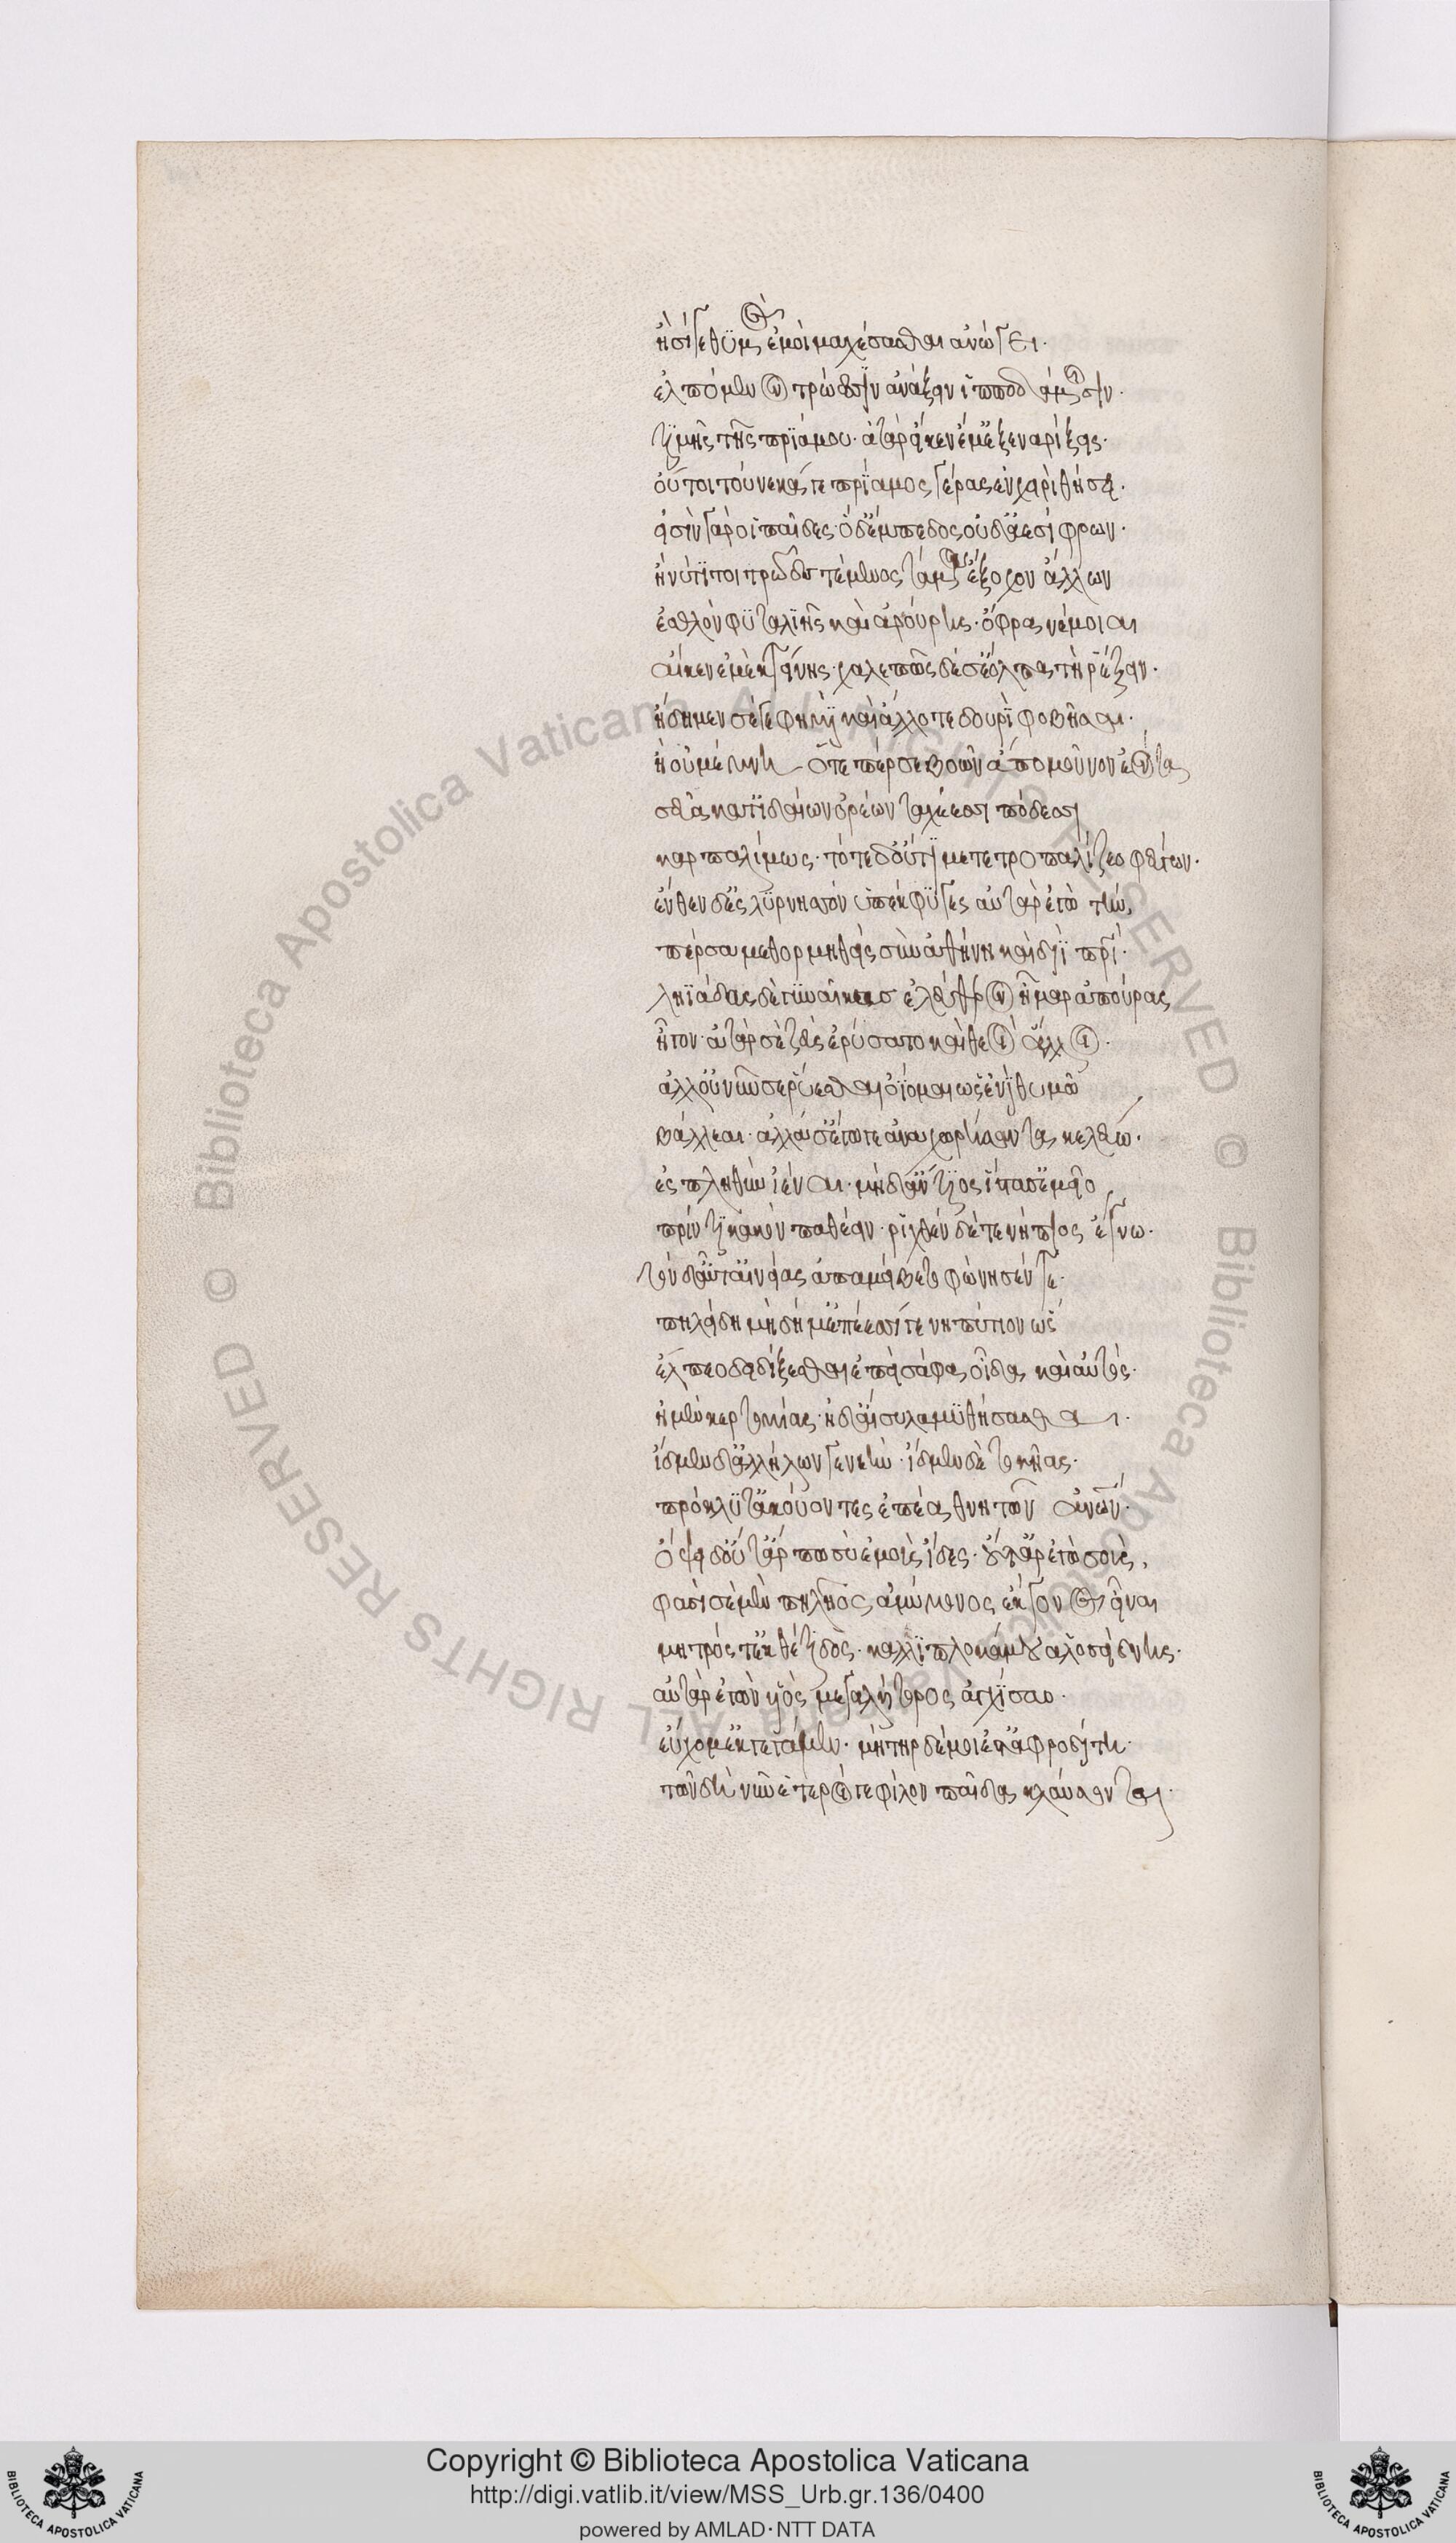 ἠ σί γε θϋμὸς ἐμοὶ μαχέσασθαι ἀνώγει·
ἐλπόμενον τρώεσσϊν ἀνάξειν ἱπποδάμοισιν·
τϊμῆς τῆς πρϊάμου· ἀτὰρ εἴκεν ἔμ' ἐξεναρίξεις·
οὔ τοι τούνεκά γε πρΐαμος γέρας ἐν χειρὶ θήσει·
εἰσὶν γάρ οἱ παῖδες· ὁ δ' ἔμπεδος οὐδ' ἀεσίφρων·
ἠ νύ τΐ τοι τρῶες τέμενος τάμον ἔξοχον ἄλλων
ἐσθλὸν φϋταλϊῆς καὶ ἀρούρης· ὄφρα νέμοιαι
αἴκεν ἐμὲ κτείνης· χαλεπῶς δέ σ' ἔολπα τὴ ῥέξειν·
ἤδη μεν σέ γέ φημϊ καὶ ἄλλοτε δουρὶ φοβῆσαι·
ἢ οὐ μέμνη ὅτε πέρ σε βοῶν ἄπο μοῦνον ἐόντα
σεῦα κατ' ϊδαίων ὀρέων ταχέεσσι πόδεσσι
καρπαλίμως· τότε δ' οὔτϊ μετετροπαλίζεο φεύγων·
ἔνθεν δ' ἐς λϋρνησσὸν ὑπέκφϋγες αὐτὰρ ἐγὼ τὴν,
πέρσα μεθορμηθεὶς σὺν ἀθήνη καὶ διϊ πρί·
ληϊάδας δὲ γϋναῖκας ἐλεύθερον ἦμαρ ἀπούρας
ἦγον· αὐτὰρ σὲ ζεὺς ἐρύσατο καὶ θεοὶ ἄλλοι·
ἀλλ' οὐ νῦν σε ῥύεσθαι ὀΐομαι ὡς ἐνὶ θυμῶ
βάλλεαι· ἀλλά σ' ἔγωγε ἀναχωρήσαντα κελεύω·
ἐς πληθὺν ἰέναι· μὴ δ' ἀντϊος ἵστασ' ἐμεῖο
πρίν τϊ κακὸν παθέειν· ῥεχθὲν δέ τε νήπϊος ἔγνω·
τὸν δ' αὖτ' αἰνείας ἀπαμείβετο φώνησέν τε·
πηλείδη μὴ δή μ' ἐπέεσσί γε νηπύτιον ὡς
ἔλπεο δειδίξεσθαι ἐπεὶ σάφα οἶδα καὶ αὐτὸς·
ἠμὲν κερτομίας· ἠδ' αἴσυλα μϋθήσασθαι·
ἴδμεν δ' ἀλλήλων γενεὴν· ἴδμεν δὲ τοκῆας·
πρόκλϋτ' ἀκούοντες ἔπεα θνητῶν ἀνῶν·
ὄψει δ' οὔτ' ἄρ πω σὺ ἐμοὺς ἴδες· οὔτ' ἄρ ἐγὼ σοὺς,
φασὶ σὲ μὲν πηλῆος ἀμύμονος ἔκγονον εἶναι
μητρός τ' ἐκ θέτϊδος· καλλϊπλοκάμου ἁλοσύδνης·
αὐτὰρ ἐγὼν ϋἱὸς μεγαλήτορος ἀγχίσαο·
εὔχομ' ἐκγεγάμεν· μήτηρ δέ μοι ἔστ' ἀφροδίτη·
τῶν δὴ νῦν ἕτεροί γε φίλον παῖδα κλαύσονται·
Copyright © Biblioteca Apostolica Vaticana
http://digi.vatlib.it/view/MSS_Urb.gr.136/0400
powered by AMLAD·NTT DATA